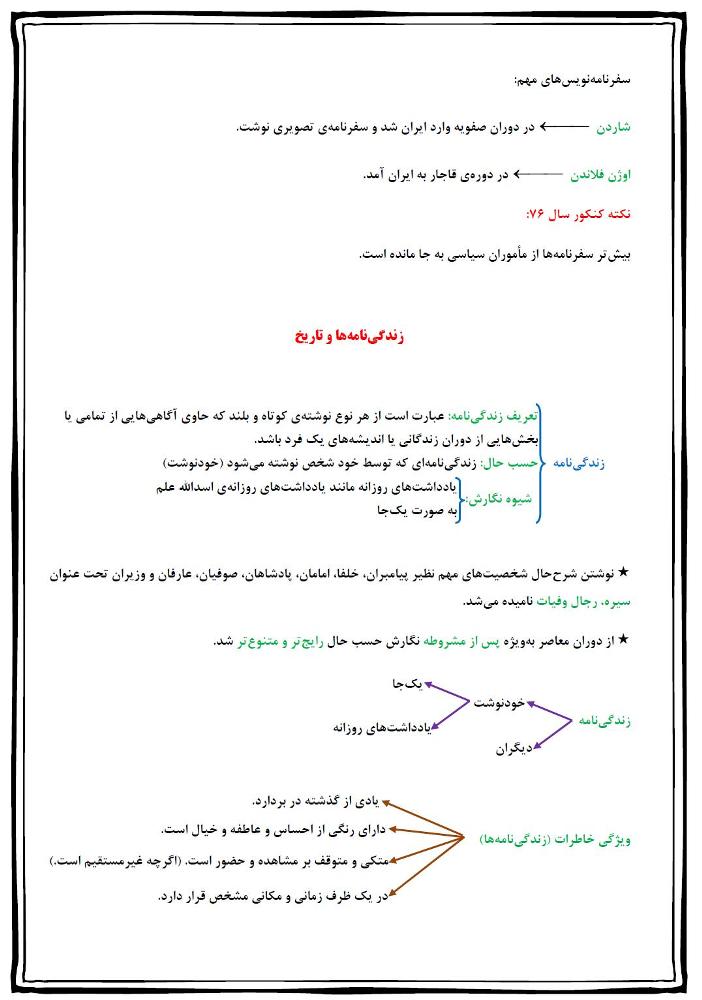 سفرنامه‌نویس‌های مهم:
شاردن ← در دوران صفویه وارد ایران شد و سفرنامه‌ی تصویری نوشت.
اوژن فلاندن ← در دوره‌ی قاجار به ایران آمد.
نکته کنکور سال ۷۶:
بیش‌تر سفرنامه‌ها از مأموران سیاسی به جا مانده است.
زندگی‌نامه‌ها و تاریخ
تعریف زندگی‌نامه: عبارت است از هر نوع نوشته‌ی کوتاه و بلند که حاوی آگاهی‌هایی از تمامی یا
بخش‌هایی از دوران زندگانی یا اندیشه‌های یک فرد باشد.
زندگی‌نامه
حسب حال: زندگی‌نامه‌ای که توسط خود شخص نوشته می‌شود (خودنوشت)
شیوه نگارش:
یادداشت‌های روزانه مانند یادداشت‌های روزانه‌ی اسدالله علم
به صورت یک‌جا
★ نوشتن شرح‌حال شخصیت‌های مهم نظیر پیامبران، خلفا، امامان، پادشاهان، صوفیان، عارفان و وزیران تحت عنوان
سیره، رجال وفیات نامیده می‌شد.
★ از دوران معاصر به‌ویژه پس از مشروطه نگارش حسب حال رایج‌تر و متنوع‌تر شد.
زندگی‌نامه
خودنوشت
یک‌جا
یادداشت‌های روزانه
دیگران
ویژگی خاطرات (زندگی‌نامه‌ها)
یادی از گذشته در بردارد.
دارای رنگی از احساس و عاطفه و خیال است.
متکی و متوقف بر مشاهده و حضور است. (اگرچه غیرمستقیم است.)
در یک ظرف زمانی و مکانی مشخص قرار دارد.